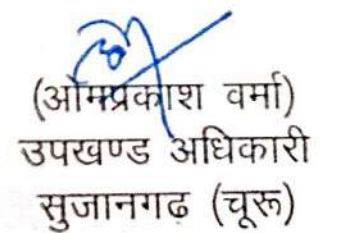 (ओमप्रकाश वर्मा)
उपखण्ड अधिकारी
सुजानगढ (चूरू)